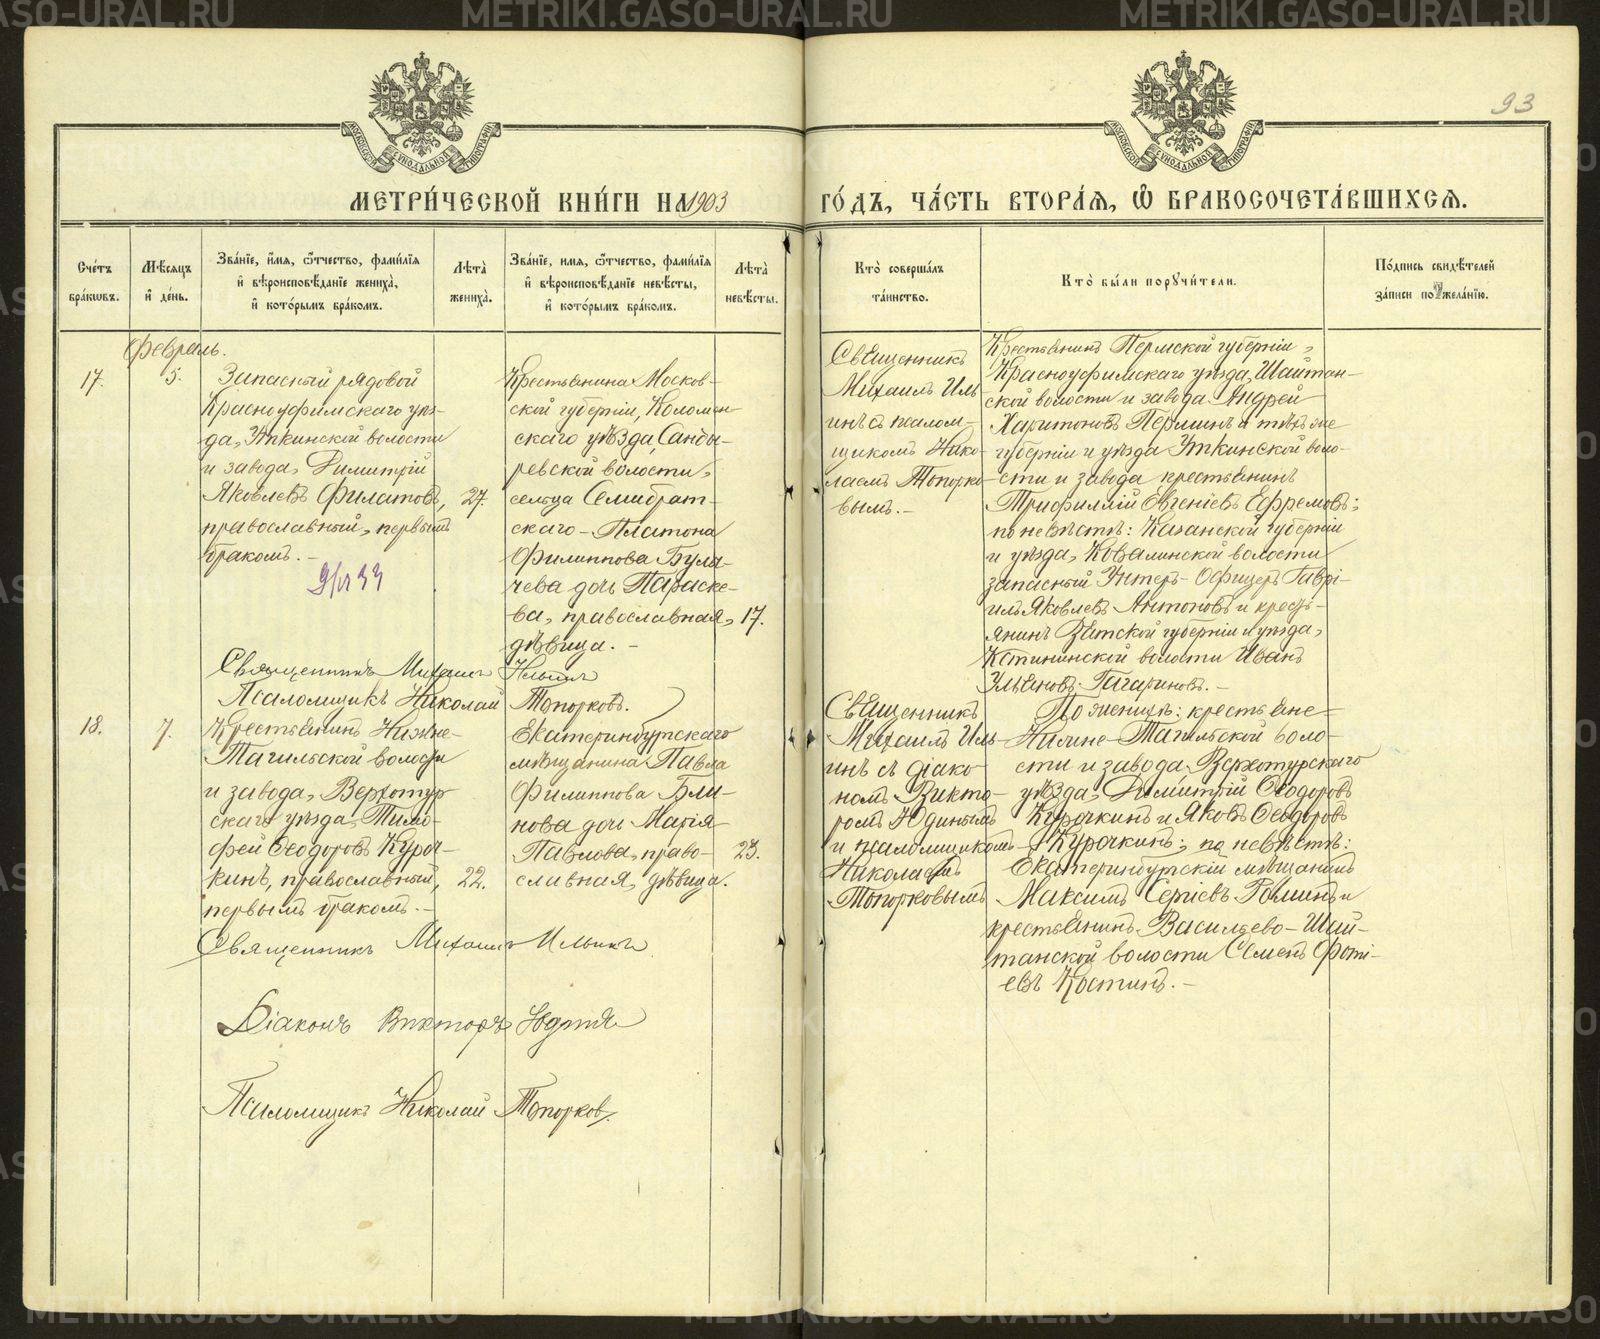 93
МЕТРИ́ЧЕСКОЙ КНИ́ГИ НА 1903 ГО́ДЪ, ЧА́СТЬ ВТОРА́Я, Ѡ БРАКОСОЧЕТА́ВШИХСЯ.
Сче́тъ бра́кѡвъ.
Мѣ́сяцъ и҆ де́нь.
Зва́нїе, и҆́мя, ѻ҆́тчество, фами́лїя и҆ вѣроисповѣ́данїе жениха̀, и҆ кото́рымъ бра́комъ.
Лѣта̀ жениха̀.
Зва́нїе, и҆́мя, ѻ҆́тчество, фами́лїя и҆ вѣроисповѣ́данїе невѣ́сты, и҆ кото́рымъ бра́комъ.
Лѣта̀ невѣ́сты.
Кто̀ соверша́лъ та́инство.
Кто̀ бы́ли порꙋчи́тели.
По́дпись свидѣ́телей за́писи по жела́нїю.
Февраль.
17.
5.
Запасный рядовой
Красноуфимскаго уѣз-
да, Уткинской волости
и завода, Димитрій
Яковлевъ Филатовъ,
православный, первымъ
бракомъ. –
27.
Крестьянина Москов-
ской губерніи, Коломен
скаго уѣзда, Санды-
ревской волости,
сельца Семибрат-
скаго – Платона
Филиппова Булы-
чева дочь Параске-
ва, православная,
дѣвица. –
17.
Священникъ
Михаилъ Иль
инъ съ псалом-
щикомъ Нико-
лаемъ Топорко-
вымъ. –
Крестьянинъ Пермской губерніи,
Красноуфимскаго уѣзда, Шайтан-
ской волости и завода Андрей
Харитоновъ Перминъ и тѣхъ же
губерніи и уѣзда Уткинской воло-
сти и завода крестьянинъ
Трифиллій Евгеніевъ Ефремовъ;
по невѣстѣ: Казанской губерніи
и уѣзда, Ковалинской волости
запасный Унтеръ-Офицеръ Гаврі-
илъ Яковлевъ Антоновъ и кресть-
янинъ Вятской губерніи и уѣзда,
Кстининской волости Иванъ
Ульяновъ Гагариновъ. –
Священникъ Михаилъ Ильинъ
Псаломщикъ Николай Топорковъ.
18.
7.
Крестьянинъ Нижне-
Тагильской волости
и завода, Верхотур
скаго уѣзда, Тимо-
фей Ѳеодоровъ Куроч-
кинъ, православный,
первымъ бракомъ. –
22.
Екатеринбургскаго
мѣщанина Павла
Филиппова Бли-
нова дочь Марія
Павлова, право-
славная, дѣвица.
23.
Священникъ
Михаилъ Иль-
инъ съ діако-
номъ Викто-
ромъ Юдинымъ
и псаломщикомъ
Николаемъ
Топорковымъ
По женихѣ: крестьяне
Нижне-Тагильской воло-
сти и завода Верхотурскаго
уѣзда, Димитрій Ѳеодоровъ
Курочкинъ и Яковъ Ѳеодоровъ
Курочкинъ; по невѣстѣ:
Екатеринбургскій мѣщанинъ
Максимъ Сергіевъ Фоминъ и
крестьянинъ Васильево-Шай-
танской волости Семенъ Фоті-
евъ Костинъ. –
Священникъ Михаилъ Ильинъ
Діаконъ Викторъ Юдинъ
Псаломщикъ Николай Топорковъ.
METRIKI.GASO-URAL.RU